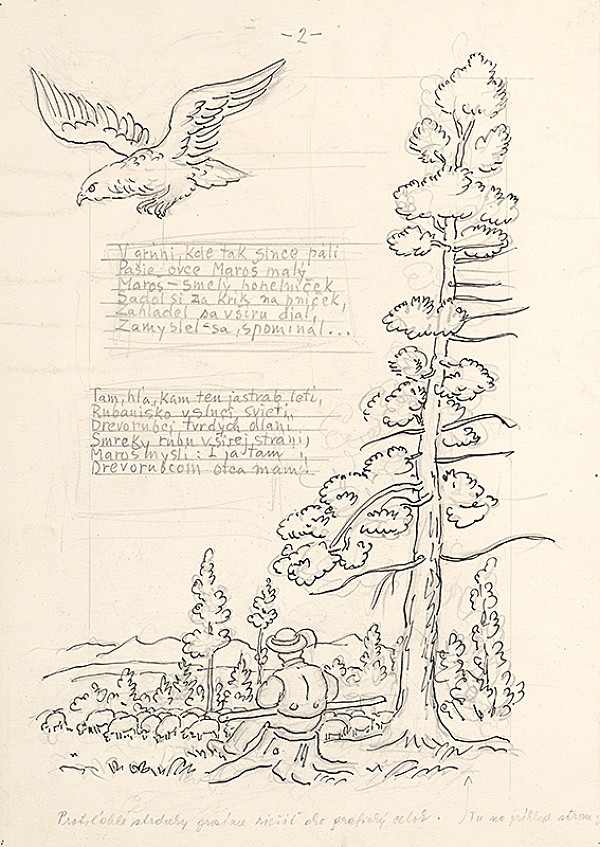 -2-
V grúni, kde tak slnce páli
Pasie ovce Maroš malý
Maroš - smelý honelníček
Sadol si za krík na pníček,
Zahľadel sa v šíru diaľ,
Zamyslel sa, spomínal...
Tam, hľa, kam ten jastrab letí,
Rúbanisko v slnci svieti,
Drevorubci tvrdých dlaní
Smreky rúbu v šírej stráni,
Maroš myslí: I ja tam
Drevorubcom otca mám!
Protiľahlé stránky prosíme riešiť ako grafický celok.
Tu na príklad strom